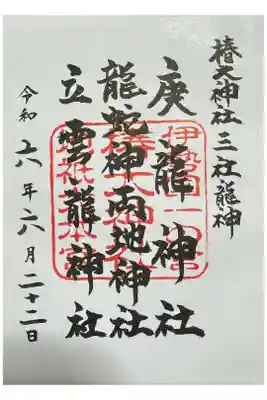 椿大神社三社龍神
庚龍神社
龍蛇神雨地神社
立雲龍神社
令和六年六月二十二日
伊勢国一宮
椿大神社
地祇大本宮